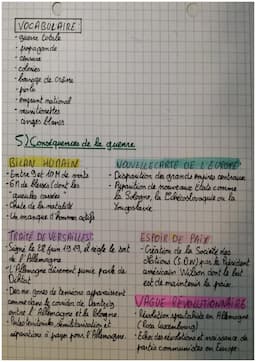 VOCABULAIRE
- guerre totale
- propagande
- censure
- colonies
- bourrage de crâne
- poilu
- emprunt national
- munitionettes
- anges blancs
5) Conséquences de la guerre
BILAN HUMAIN
- Entre 9 et 10 M de morts
- 6 M de blessés (dont les
gueules cassées)
- Chute de la natalité
- Un manque d'hommes actifs
NOUVELLE CARTE DE L'EUROPE
- Disparition des grands empires centraux
- Apparition de nouveaux États comme
la Pologne, la Tchécoslovaquie ou la
Yougoslavie.
TRAITÉ DE VERSAILLES
- Signé le 28 juin 1919, il règle le sort
de l'Allemagne
- L'Allemagne sévèrement punie parle de
Diktat
- Des zones de tensions apparaissent
comme dans le couloir de Dantzig
entre l'Allemagne et la Pologne.
démilitarisation et
réparations à payer pour l'Allemagne.
ESPOIR DE PAIX
- Création de la Société des
Nations (SDN) par le président
américain Wilson dont le but
est de maintenir la paix.
VAGUE RÉVOLUTIONNAIRE
- Révolution spartakiste en Allemagne
(Rosa Luxemburg)
- Échec des révolutions et naissance de
partis communistes en Europe.